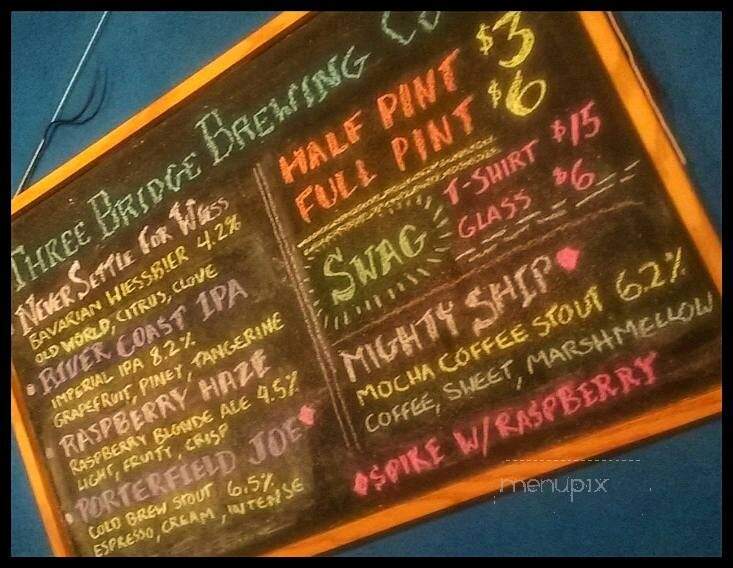 THREE BRIDGE BREWING CO
NEVER SETTLE FOR WEISS
BAVARIAN WIESSBIER 4.2%
OLD WORLD, CITRUS, CLOVE
• RIVER COAST IPA
IMPERIAL IPA 8.2%
GRAPEFRUIT, PINEY, TANGERINE
• RASPBERRY HAZE
RASPBERRY BLONDE ALE 4.5%
LIGHT, FRUITY, CRISP
• PORTERFIELD JOE
COLD BREW STOUT 6.5%
ESPRESSO, CREAM, INTENSE
HALF PINT $3
FULL PINT $6
SWAG
T-SHIRT $15
GLASS $6
MIGHTY SHIP
MOCHA COFFEE STOUT 6.2%
COFFEE, SWEET, MARSHMELLOW
SPIKE W/RASPBERRY
menupix